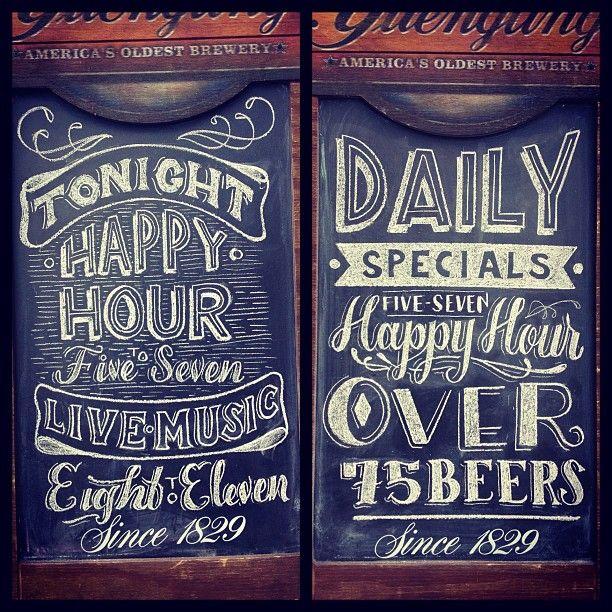 Yuengling
AMERICA'S OLDEST BREWERY
TONIGHT
HAPPY
HOUR
Five TO Seven
LIVE MUSIC
Eight TO Eleven
Since 1829
Yuengling
AMERICA'S OLDEST BREWERY
DAILY
SPECIALS
FIVE-SEVEN
Happy Hour
OVER
75 BEERS
Since 1829